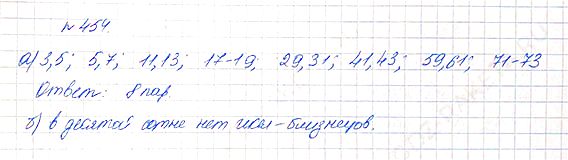 №454.
а) 3,5; 5,7; 11,13; 17-19; 29,31; 41,43; 59,61; 71-73
Ответ: 8 пар.
б) в десятой сотне нет чисел-близнецов.